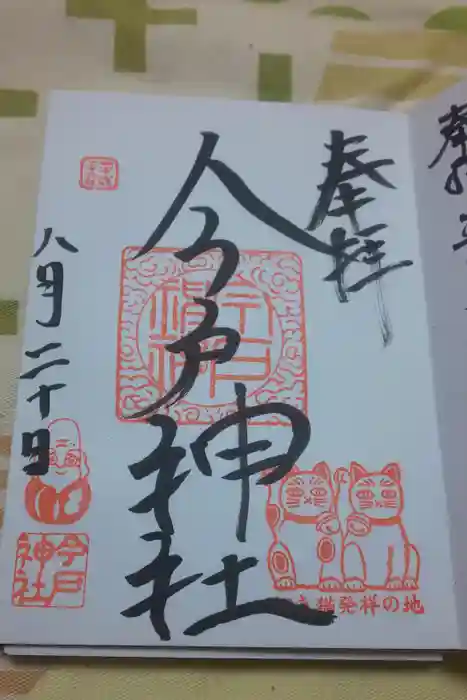 奉拝
今戸神社
八月二十日
今戸神社
今戸
神社
猫発祥の地
奉拝